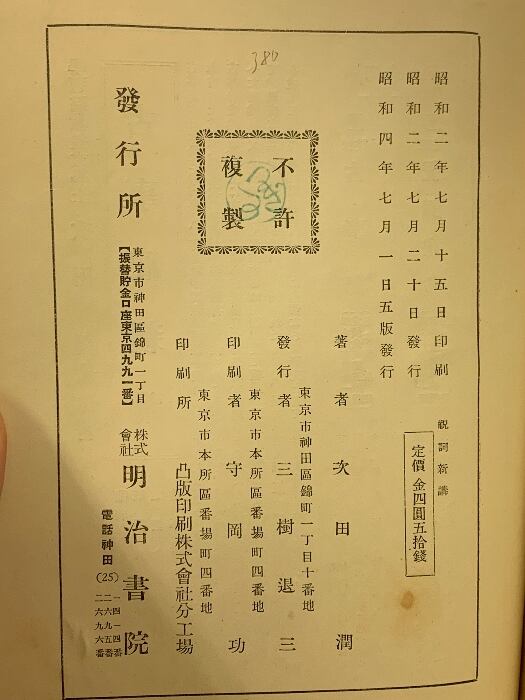 昭和二年七月十五日印刷
昭和二年七月二十日發行
昭和四年七月一日五版發行
祝詞新講
定價金四圓五拾錢
不許
複製
380
著者 次田潤
東京市神田區錦町一丁目十番地
發行者 三樹退三
東京市本所區番場町四番地
印刷者 守岡功
東京市本所區番場町四番地
印刷所 凸版印刷株式會社分工場
發行所
東京市神田區錦町一丁目
【振替貯金口座東京四九九一番】
株式
會社
明治書院
電話神田(25)
一四一四番
二六九五番
二六九六番